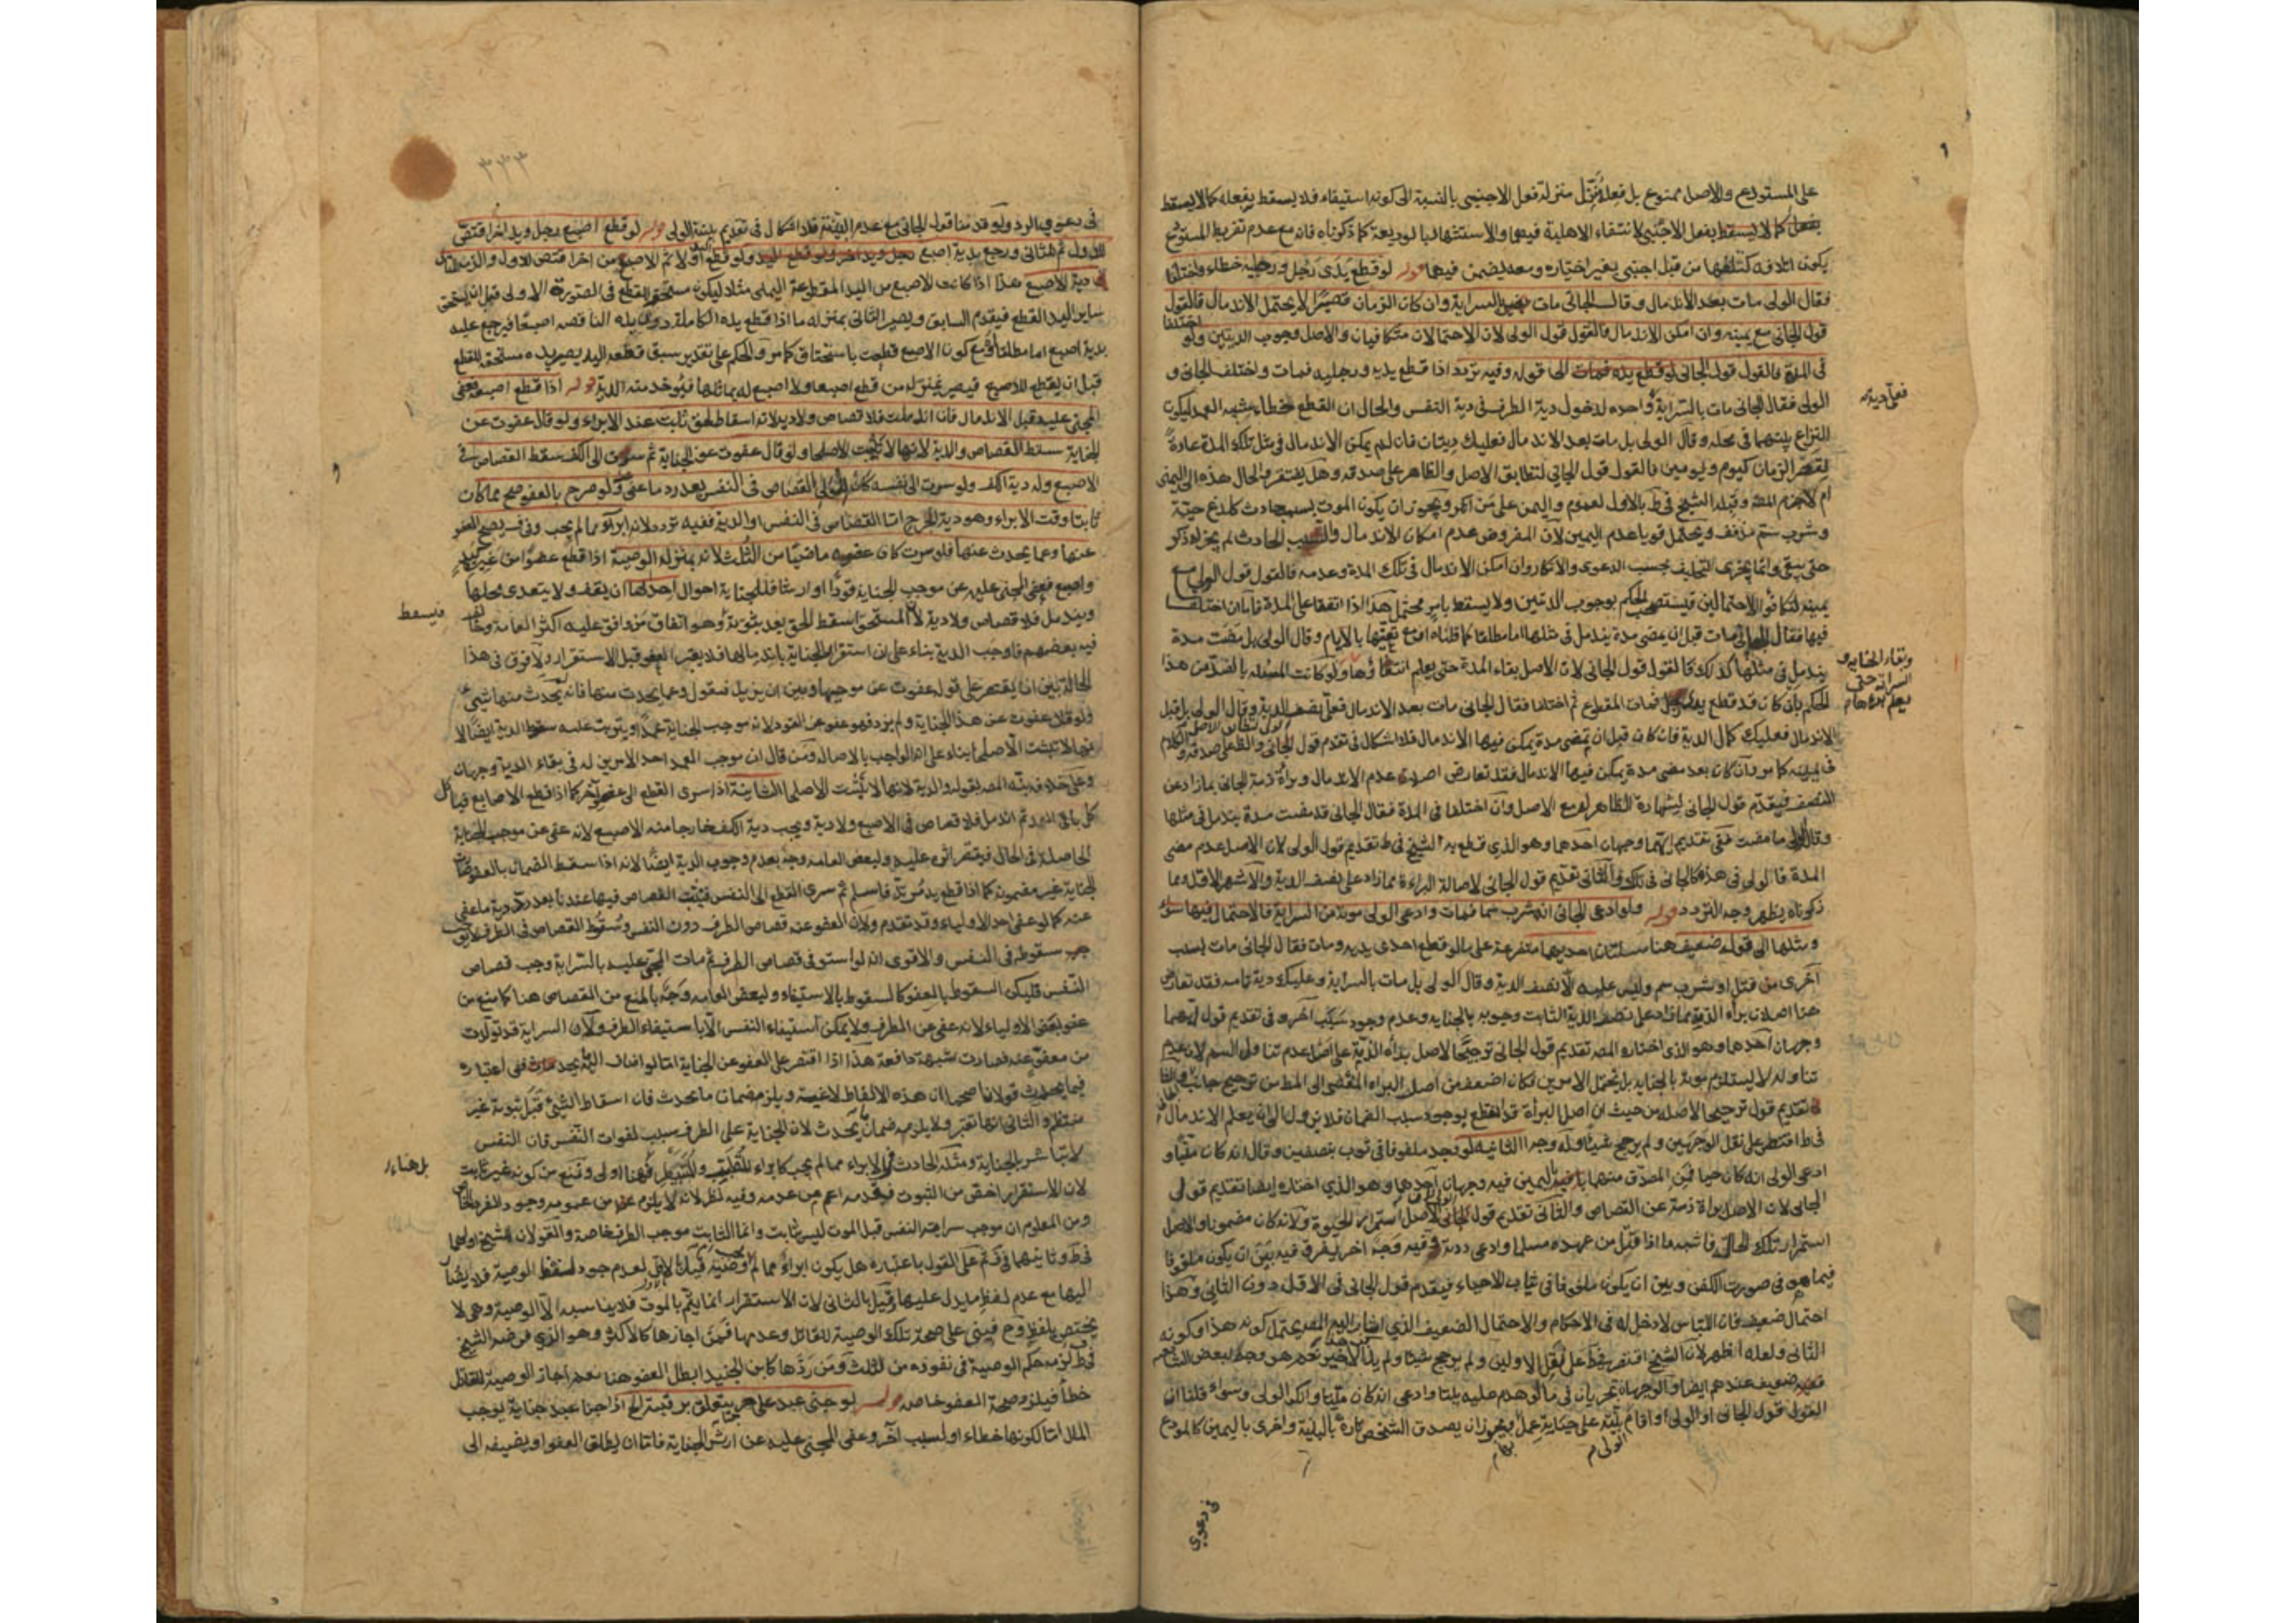 على المستودع والاصل ممنوع بل فعله نزل منزلة فعل الاجنبي بالنسبة الى كونه استيفاء فلا يسقط بفعله كما لا يسقط
بفعل الاجنبي لانتفاء الاهلية فيهما والاستشهاد بالوديعة كما ذكرناه فانه مع عدم تفريط المستودع
يكون اتلافه كتلفها من قبل اجنبي بغير اختياره ومعه يضمن فيهما قوله لو قطع يدي رجل ورجليه خطاء واختلفا
فقال الولي مات بعد الاندمال وقال الجاني مات بالسراية وان كان الزمان قصيرا لا يحتمل الاندمال فالقول
قول الجاني مع يمينه وان امكن الاندمال فالقول قول الولي لان الاحتمالان متكافيان والاصل وجوب الديتين ولو اختلفا
في المدة فالقول قول الجاني لو قطع يده فمات الى قوله وفيه تردد اذا قطع يديه ورجليه فمات واختلف الجاني و
الولي فقال الجاني مات بالسراية واحدة لدخول دية الطرف في دية النفس والحال ان القطع خطاء شبه العمد ليكون
فعلي دية
النزاع بينهما في محله وقال الولي بل مات بعد الاندمال فعليك ديتان فان لم يمكن الاندمال في مثل تلك المدة عادة
لقصر الزمان كيوم ويومين فالقول قول الجاني لتطابق الاصل والظاهر على صدقه وهل يفتقر والحال هذه الى اليمين
ام لا جزم المصنف وقبله الشيخ في ط بالاول لعموم واليمين على من انكر ويجوز ان يكون الموت بسبب حادث كلدغ حية
وشرب سم مذفف ويحتمل قويا عدم اليمين لان المفروض عدم امكان الاندمال والسبب الحادث لم يجر له ذكر
حتى ينفى وانما يجزى التحليف بحسب الدعوى والانكار وان امكن الاندمال في تلك المدة وعدمه فالقول قول الولي مع
يمينه لتكافؤ الاحتمالين فيستصحب الحكم بوجوب الديتين ولا يسقط بامر محتمل هذا اذا اتفقا على المدة فاما ان اختلفا
فيها فقال الجاني مات قبل ان يمضى مدة يندمل في مثلها اما مطلقا كما قلناه او مع تعيينها بالايام وقال الولي بل مضت مدة
يندمل في مثلها كذلك فالقول قول الجاني لان الاصل بقاء المدة حتى يعلم انتفاؤها ولو كانت المسئلة بالضد من هذا
وبقاء الجناية و
السراية حتى
الحكم بان كان قد قطع يد رجل فمات المقطوع ثم اختلفا فقال الجاني مات بعد الاندمال فعلي نصف الدية وقال الولي بل قبل
الاندمال فعليك كمال الدية فان كان قبل ان يمضى مدة يمكن فيها الاندمال فلا اشكال في تقدم قول
في يمينه كما مر وان كان بعد مضى مدة يمكن فيها الاندمال فقد تعارض اصلان عدم الاندمال وبراءة ذمة الجاني بما زاد عن
النصف فيقدم قول الجاني لشهادة الظاهر له مع الاصل وان اختلفا في المدة فقال الجاني قد مضت مدة يندمل في مثلها
وقال الولي ما مضت ففي تقديم ايهما وجهان احدهما وهو الذي قطع به الشيخ في ط تقديم قول الولي لان الاصل عدم مضى
المدة فالولي في هذه كالجاني في تلك والثاني تقديم قول الجاني لاصالة البراءة مما زاد على نصف الدية والاشهر الاول ومما
ذكرناه يظهر وجه التردد قوله ولو ادعى الجاني انه شرب سما فمات وادعى الولي موته من السراية فالاحتمال فيهما سواء
ومثلها الى قوله ضعيف هنا مسئلتان احديهما متفرعة على ما لو قطع احدى يديه ومات فقال الجاني مات بسبب
آخر من قتل او شرب سم وليس عليه الا نصف الدية وقال الولي بل مات بالسراية وعليك دية تامة فقد تعارض
هنا اصلان براءة الذمة مما زاد على نصف الدية الثابت وجوبه بالجناية وعدم وجود سبب آخر وفي تقديم قول ايهما
وجهان احدهما وهو الذي اختاره المصنف تقديم قول الجاني ترجيحا لاصل براءة الذمة على اصل عدم تناول السم لان عدم
تناوله لا يستلزم موته بالجناية بل يحتمل الامرين فكان اضعف من اصل البراءة المقتضى
تقديم قول ترجيح الاصل من حيث ان اصل البراءة قد انقطع بوجود سبب الضمان فلا يزول الى ان يعلم الاندمال
في ط اقتصر على نقل الوجهين ولم يرجح شيئا وله وجه الثانية لو وجد ملفوفا في ثوب بنصفين وقال انه كان ميتا و
ادعى الولي انه كان حيا فمن المصدق منهما باليمين فيه وجهان احدهما وهو الذي اختاره ايضا تقديم قول
الجاني لان الاصل براءة ذمته عن القصاص والثاني تقديم قول الولي لان الاصل استمرار الحيوة ولانه كان مضمونا والاصل
استمرار تلك الحالة فاشبه ما اذا قتل من عهده مسلما وادعى ردته وفيه وجه اخر يفرق فيه بين ان يكون ملفوفا
فيما هو في صورة الكفن وبين ان يكون ملفوفا في ثياب الاحياء فيقدم قول الجاني في الاول دون الثاني وهذا
احتمال ضعيف فان اللباس لا دخل له في الاحكام والاحتمال الضعيف الذي اشار اليه المصنف يحتمل كونه هذا وكونه
الثاني ولعله اظهر لان الشيخ اقتصر في ط على نقل الاولين ولم يرجح شيئا ولم يذكر الاخير نعم هو وجه لبعض الشافعية
ضعيف عندهم ايضا والوجهان يجريان في ما لو هدم عليه بيتا وادعى انه كان ميتا وانكر الولي وسواء قلنا ان
القول قول الجاني او الولي او اقام بينة على جناية عمل بها ويجوز ان يصدق الشخص تارة بالبينة واخرى باليمين كالمودع
في دعوى
٣٣٣
في دعوى الرد ولو قدمنا قول الجاني مع عدم البينة فلا اشكال في تقديم بينة الولي قوله لو قطع اصبع رجل ويد آخر اقتص
للاول ثم للثاني ورجع بدية اصبع ولو قطع اليد اولا ثم الاصبع من آخر اقتص للاول والزم للثاني
دية الاصبع هذا اذا كانت الاصبع من اليد المقطوعة اليمنى مثلا ليكون مستحق القطع في الصورة الاولى قبل ان يستحق
ساير اليد القطع فيقدم السابق ويصير الثاني بمنزلة ما اذا قطع يده الكاملة ذو يد الناقصة اصبعا فيرجع عليه
بدية اصبع اما مطلقا او مع كون الاصبع قطعت باستحقاق كما مر والحكم على تقدير سبق قطعه اليد يصير يده مستحق للقطع
قبل ان يقطع الاصبع فيصير بمنزلة من قطع اصبعا ولا اصبع له يماثلها فيؤخذ منه الدية قوله اذا قطع اصبعه فعفى
المجني عليه قبل الاندمال فان اندملت فلا قصاص ولا دية لانه اسقاط لحق ثابت عند الابراء ولو قال عفوت عن
الجناية سقط القصاص والدية لانها لا تثبت الا صلحا ولو قال عفوت عن الجناية ثم سرت الى الكف سقط القصاص في
الاصبع وله دية الكف ولو سرت الى نفسه كان للولي القصاص في النفس بعد رد ما عفى ولو صرح بالعفو صح مما كان
ثابتا وقت الابراء وهو دية الجرح اما القصاص في النفس او الدية ففيه تردد لانه ابراء مما لم يجب وفي ف يصح العفو
عنها وعما يحدث عنها فلو سرت كان عفوه ماضيا من الثلث لانه بمنزلة الوصية اذا قطع عضوا من غيره كيد
واصبع فعفى المجني عليه عن موجب الجناية قودا او ارشا فللجناية احوال احدها ان يقف ولا يتعدى محلها
ويندمل فلا قصاص ولا دية لان المستحق اسقط الحق بعد ثبوته وهو اتفاق من وافق عليه اكثر العامة وخالف
فيسقط
فيه بعضهم فاوجب الدية بناء على ان استقرار الجناية باندمالها فلا يعتبر العفو قبل الاستقرار ولا فرق في هذا
الحالة بين ان يقتصر على قوله عفوت عن موجبها وبين ان يزيد فيقول وعما يحدث منها فانه لم يحدث منها شيء
ولو قال عفوت عن هذا الجناية ولم يزد فهو عفو عن القود لانه موجب الجناية عمدا ويترتب عليه سقوط الدية ايضا لا
نها لا تثبت الا صلحا بناء على انه الواجب بالاصالة ومن قال ان موجب العمد احد الامرين له في بقاء الدية وجهان
وعلى خلافه نبه المصنف بقوله والدية لانها لا تثبت الا صلحا الثانية اذا سرى القطع الى عضو آخر كما اذا قطع الاصابع فتاكل
كل باقي اليد ثم اندمل فلا قصاص في الاصبع ولا دية ويجب دية الكف خارجا منه الاصبع لانه عفى عن موجب الجناية
الحاصلة في الحال فيقتصر اثره عليه ولبعض العامة وجه بعدم وجوب الدية ايضا لانه اذا سقط الضمان بالعفو صارت
الجناية غير مضمونة كما اذا قطع يد مرتد فاسلم ثم سرى القطع الى النفس فيثبت القصاص فيها عندنا بعد رد دية ما عفى
عنه كما لو عفى احد الاولياء وقد تقدم ولان العفو عنه قصاص الطرف دون النفس وسقوط القصاص في الطرف لا يوجب
سقوطه في النفس والاقوى انه لو استوفى قصاص الطرف ثم مات المجني عليه بالسراية وجب قصاص
النفس فليكن السقوط بالعفو كالسقوط بالاستيفاء ولبعض العامة وجه بالمنع من القصاص هنا كما منع من
عفو بعض الاولياء لانه عفى عن الطرف ولا يمكن استيفاء النفس الا باستيفاء الطرف ولان السراية قد تولدت
من معفو عنه فصارت شبهة دافعة هذا اذا اقتصر على العفو عن الجناية اما لو اضاف اليه ما يحدث ففي اعتباره
فيما يحدث قولان اصحهما ان هذه الالفاظ لاغية ويلزم ضمان ما يحدث فان اسقاط الشيء قبل ثبوته غير
منتظم والثاني انها تعتبر ولا يلزمه ضمان ما يحدث لان الجناية على الطرف سبب لفوات النفس فان النفس
لا تباشر بالجناية ومثله الحادث في الابراء مما لم يجب
بل هنا
لان الاستقرار اخص من الثبوت فعدمه اعم من عدمه وفيه نظر لانه لا يلزم من عمومه وجود الفرد الخاص
ومن المعلوم ان موجب سراية النفس قبل الموت ليس بثابت وانما الثابت موجب الطرف خاصة والقولان للشيخ اولهما
في ط وثانيهما في ف ثم على القول باعتباره هل يكون ابراء عما لم يجب او وصية قيل بالاول لعدم وجود لفظ الوصية فلا يضاف
اليها مع عدم لفظ ما يدل عليها وقيل بالثاني لان الاستقرار انما يتم بالموت فلا يناسبه الا الوصية وهي لا
يختص بلفظ وح فيبنى على صحة تلك الوصية للقاتل وعدمها فمن اجازها كالاكثر وهو الذي فرضه الشيخ
في ط لزمه حكم الوصية في نفوذه من الثلث ومن ردها كابن الجنيد ابطل العفو هنا نعم اجاز الوصية للقاتل
خطأ فيلزمه صحة العفو خاصة قوله لو جنى عبد على حر جناية يتعلق برقبته الخ اذا جنا عبد جناية يوجب
المال اما لكونها خطاء او لسبب آخر وعفى المجني عليه عن ارش الجناية فاما ان يطلق العفو او يضيفه الى